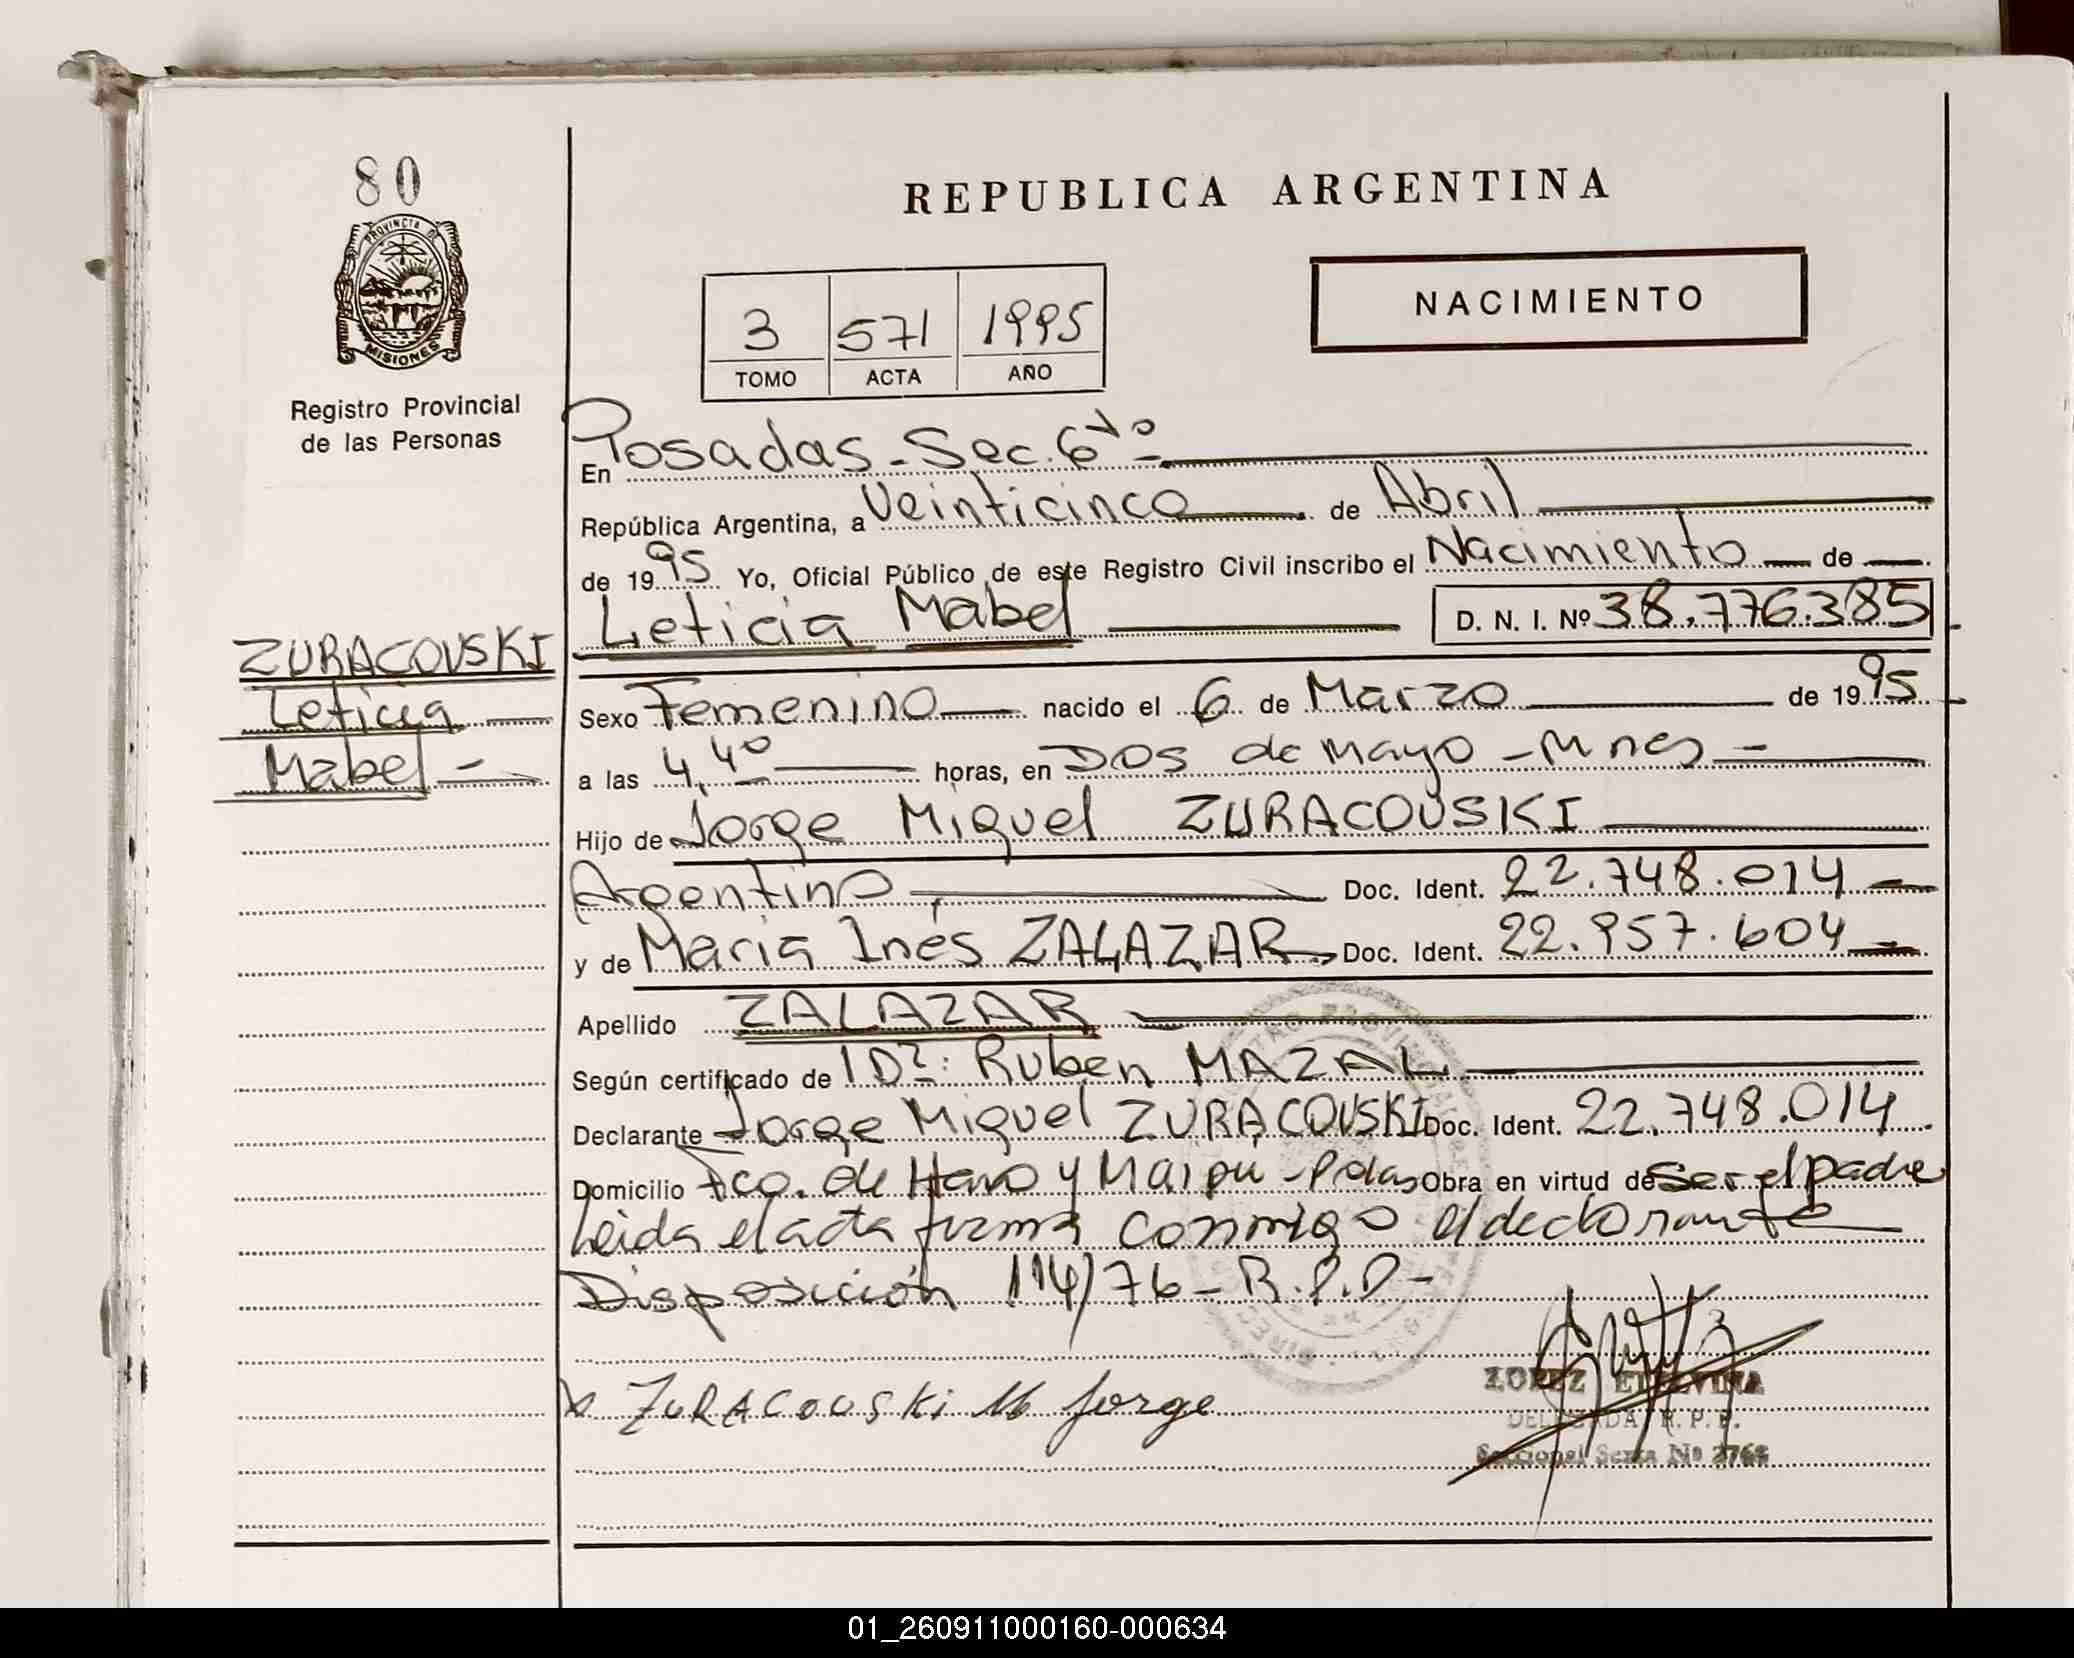 80
PROVINCIA D
MISIONES
Registro Provincial
de las Personas
ZURACOVSKI
Leticia
Mabel
REPUBLICA ARGENTINA
3 571 1995
TOMO ACTA AÑO
NACIMIENTO
En Posadas - Sec. 6ta
República Argentina, a Veinticinco de Abril
de 1995 Yo, Oficial Público de este Registro Civil inscribo el Nacimiento de
Leticia Mabel D. N. I. Nº 38.776.385
Sexo Femenino nacido el 6 de Marzo de 1995
a las 4,40 horas, en Dos de Mayo - Mnes -
Hijo de Jorge Miguel ZURACOVSKI
Argentino Doc. Ident. 22.748.014
y de Maria Inés ZALAZAR Doc. Ident. 22.957.604
Apellido ZALAZAR
Según certificado de Dr: Ruben MAZAL
Declarante Jorge Miguel ZURACOVSKI Doc. Ident. 22.748.014
Domicilio Fco. de Haro y Maipú - Pdas Obra en virtud de ser el padre
Leida el acta firma conmigo el declarante
Disposición 114/76 - R.P.P -
ZURACOVSKi M Jorge
LOPEZ ETELVINA
DELEGADA R. P. P.
Seccional Sexta Nº 2768
01_260911000160-000634